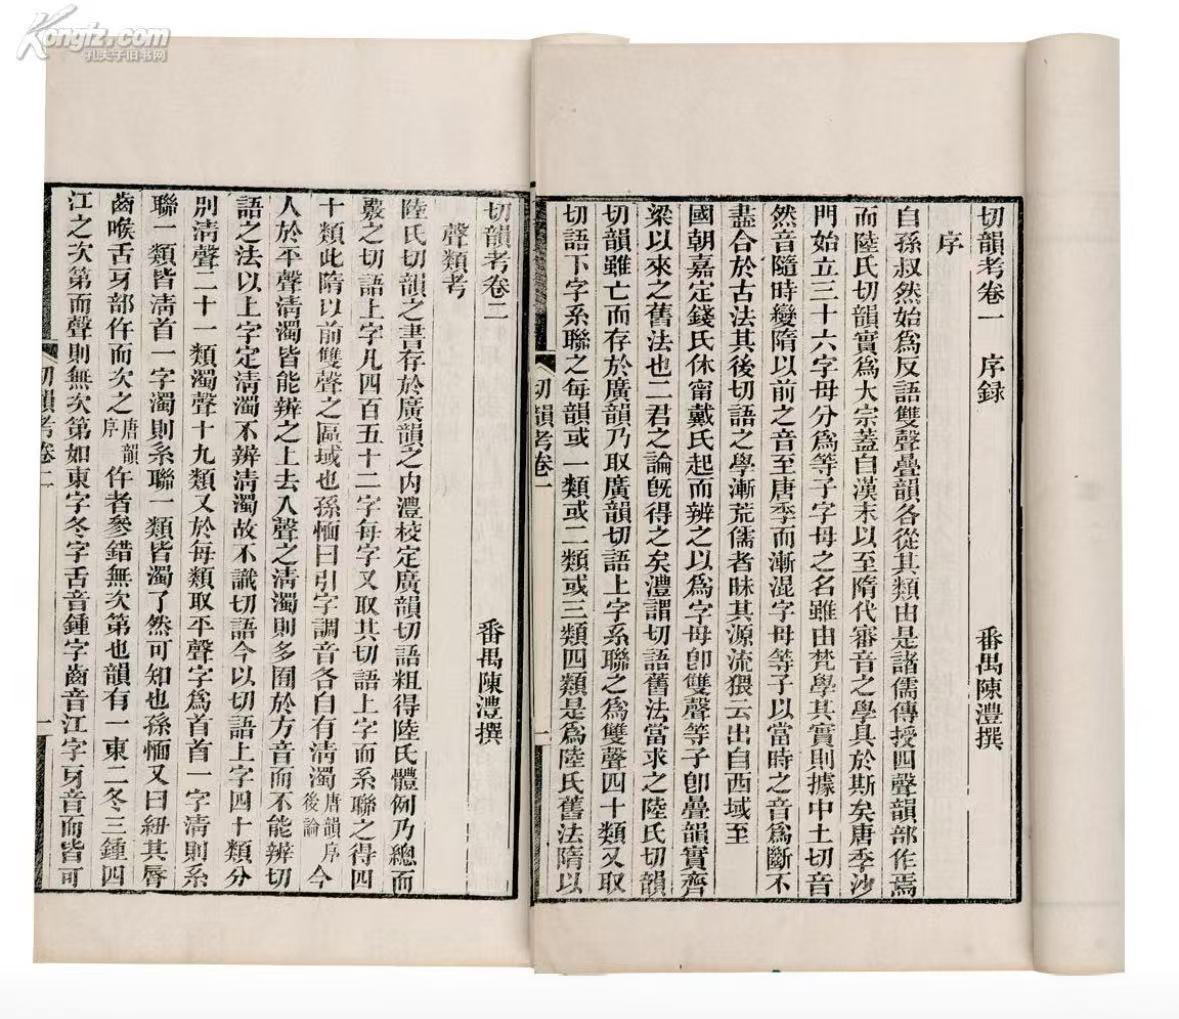 Kongfz.com
孔夫子旧书网
切韻考卷一　序録　番禺陳澧撰
序
自孫叔然始爲反語雙聲疊韻各從其類由是諸儒傳授四聲韻部作焉
而陸氏切韻實爲大宗蓋自漢末以至隋代審音之學具於斯矣唐季沙
門始立三十六字母分爲等子字母之名雖由梵學其實則據中土切音
然音隨時變隋以前之音至唐季而漸混字母等子以當時之音爲斷不
盡合於古法其後切語之學漸荒儒者昧其源流猥云出自西域至
國朝嘉定錢氏休甯戴氏起而辨之以爲字母卽雙聲等子卽疊韻實齊
梁以來之舊法也二君之論旣得之矣澧謂切語舊法當求之陸氏切韻
切韻雖亡而存於廣韻乃取廣韻切語上字系聯之爲雙聲四十類又取
切語下字系聯之每韻或一類或二類或三類四類是爲陸氏舊法隋以
切韻考卷一
一
切韻考卷二
聲類考　番禺陳澧撰
陸氏切韻之書存於廣韻之內澧校定廣韻切語粗得陸氏體例乃總而
覈之切語上字凡四百五十二字每字又取其切語上字而系聯之得四
十類此隋以前雙聲之區域也孫愐曰引字調音各自有清濁唐韻序後論今
人於平聲清濁皆能辨之上去入聲之清濁則多囿於方音而不能辨切
語之法以上字定清濁不辨清濁故不識切語今以切語上字四十類分
別清聲二十一類濁聲十九類又於每類取平聲字爲首首一字清則系
聯一類皆清首一字濁則系聯一類皆濁了然可知也孫愐又曰紐其脣
齒喉舌牙部仵而次之唐韻序仵者參錯無次第也韻有一東二冬三鍾四
江之次第而聲則無次第如東字冬字舌音鍾字齒音江字牙音而皆可
切韻考卷二
一